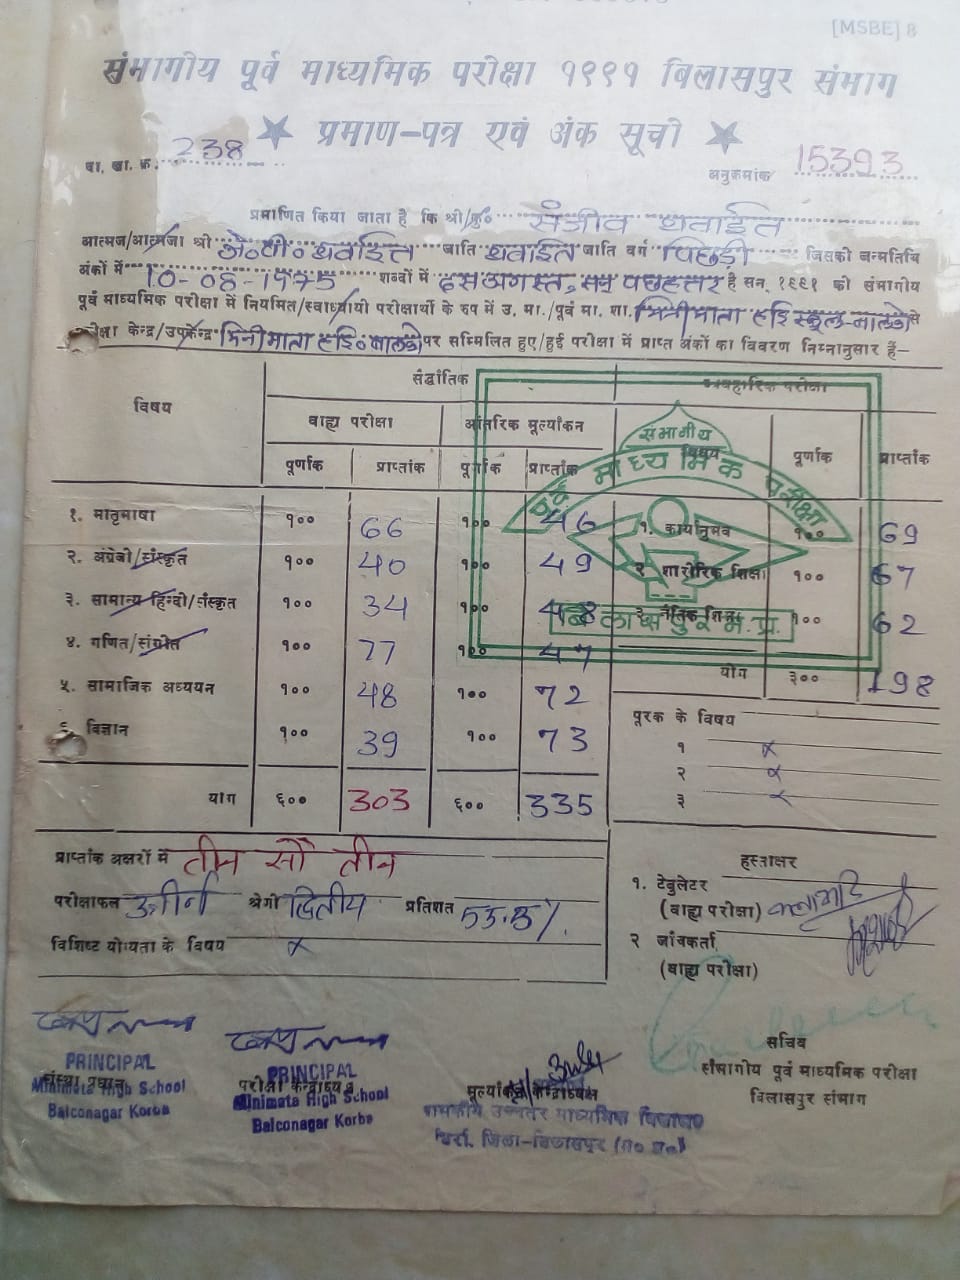 [MSBE] 8
संभागीय पूर्व माध्यमिक परीक्षा १९९१ बिलासपुर संभाग
★ प्रमाण-पत्र एवं अंक सूची ★
पा. खा. क्र. 238
अनुक्रमांक 15393
प्रमाणित किया जाता है कि श्री/कु० संजीव थवाईत
आत्मज/आत्मजा श्री जे०पी० थवाईत जाति थवाईत जाति वर्ग पिछड़ी जिसकी जन्मतिथि
अंकों में 10-08-1975 शब्दों में दस अगस्त, सन् पचहत्तर है सन् १९९१ की संभागीय
पूर्व माध्यमिक परीक्षा में नियमित/स्वाध्यायी परीक्षार्थी के रूप में उ. मा./पूर्व मा. शा. मिनीमाता हाई स्कूल-बालको से
परीक्षा केन्द्र/उपकेन्द्र मिनीमाता हाई० बालको पर सम्मिलित हुए/हुई परीक्षा में प्राप्त अंकों का विवरण निम्नानुसार हैं-
विषय सैद्धांतिक व्यवहारिक परीक्षा
बाह्य परीक्षा आंतरिक मूल्यांकन विषय पूर्णांक प्राप्तांक
पूर्णांक प्राप्तांक पूर्णांक प्राप्तांक
संभागीय
पूर्व माध्यमिक परीक्षा
बिलासपुर म.प्र.
१. मातृभाषा १०० 66 १०० 46 १. कार्यानुभव १०० 69
२. अंग्रेजी/संस्कृत १०० 40 १०० 49 २ शारीरिक शिक्षा १०० 67
३. सामान्य हिन्दी/संस्कृत १०० 34 १०० 48 ३ नैतिक शिक्षा १०० 62
४. गणित/संगीत १०० 77 १०० 47
योग ३०० 198
५. सामाजिक अध्ययन १०० 48 १०० 72
६. विज्ञान १०० 39 १०० 73
पूरक के विषय
१ x
२ x
३ x
योग ६०० 303 ६०० 335
प्राप्तांक अक्षरों में तीन सौ तीन
परीक्षाफल उत्तीर्ण श्रेणी द्वितीय प्रतिशत
विशिष्ट योग्यता के विषय x
हस्ताक्षर
१. टेबुलेटर
(बाह्य परीक्षा)
२ जांचकर्ता
(बाह्य परीक्षा)
PRINCIPAL
संस्था प्रधान
Minimata High School
Balconagar Korba
PRINCIPAL
परीक्षा केन्द्राध्यक्ष
Minimata High School
Balconagar Korba
मूल्यांकन केन्द्राध्यक्ष
शासकीय उच्चतर माध्यमिक विद्यालय
जिला-बिलासपुर (म० प्र०)
सचिव
संभागीय पूर्व माध्यमिक परीक्षा
बिलासपुर संभाग